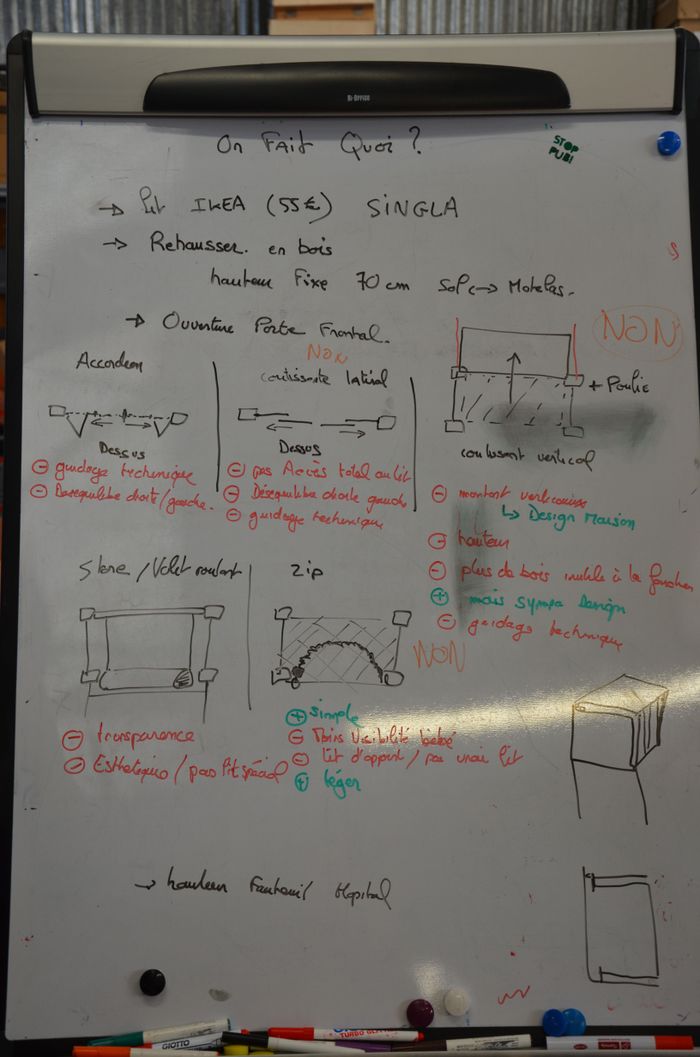 Bi-OFFICE
On Fait Quoi ?
STOP
PUB!
→ Lit IKEA (55€) SINGLA
→ Rehausser en bois
hauteur Fixe 70 cm Sol ↔ Matelas.
→ Ouverture Porte Frontal.
NON
Accordeon
NON
coulissante latéral
+ Poulie
Dessus
Dessus
coulissant vertical
⊖ guidage technique
⊖ Desequilibre droite/gauche.
⊖ pas Accès total au lit
⊖ Déséquilibre droite gauche
⊖ guidage technique
⊖ montant verticaux
↳ Design Maison
⊖ hauteur
⊖ plus de bois inutile à la fonction
⊕ mais sympa Design
⊖ guidage technique
Store / Volet roulant
Zip
NON
⊖ transparence
⊖ Esthetique / pas lit spécial
⊕ simple
⊖ Moins visibilité bébé
⊖ lit d'appoint / pas vrai lit
⊕ léger
→ hauteur Fauteuil Hopital
GIOTTO
TURBO